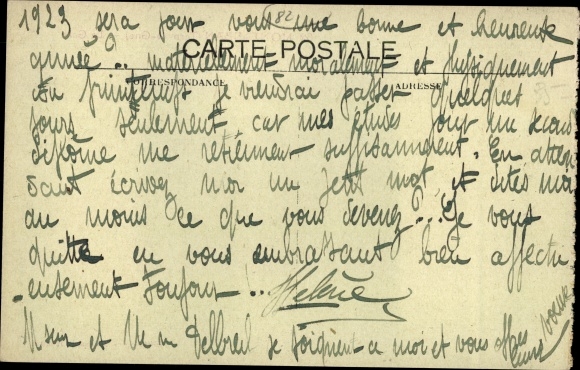 1923 sera pour vous une bonne et heureuse
182
année ? .. matériellement moralement et physiquement
CARTE POSTALE
CORRESPONDANCE
ADRESSE
Au printemps je viendrai passer quelques
jours seulement car mes études pour un second
diplôme me retiennent suffisamment. En atten
dant écrivez moi un petit mot et dites moi
au moins ce que vous devenez ? ... Je vous
quitte en vous embrassant bien affectu
-eusement Toujours ... Hélène
Mr et Mme Delbreil se joignent à moi et vous
voeux